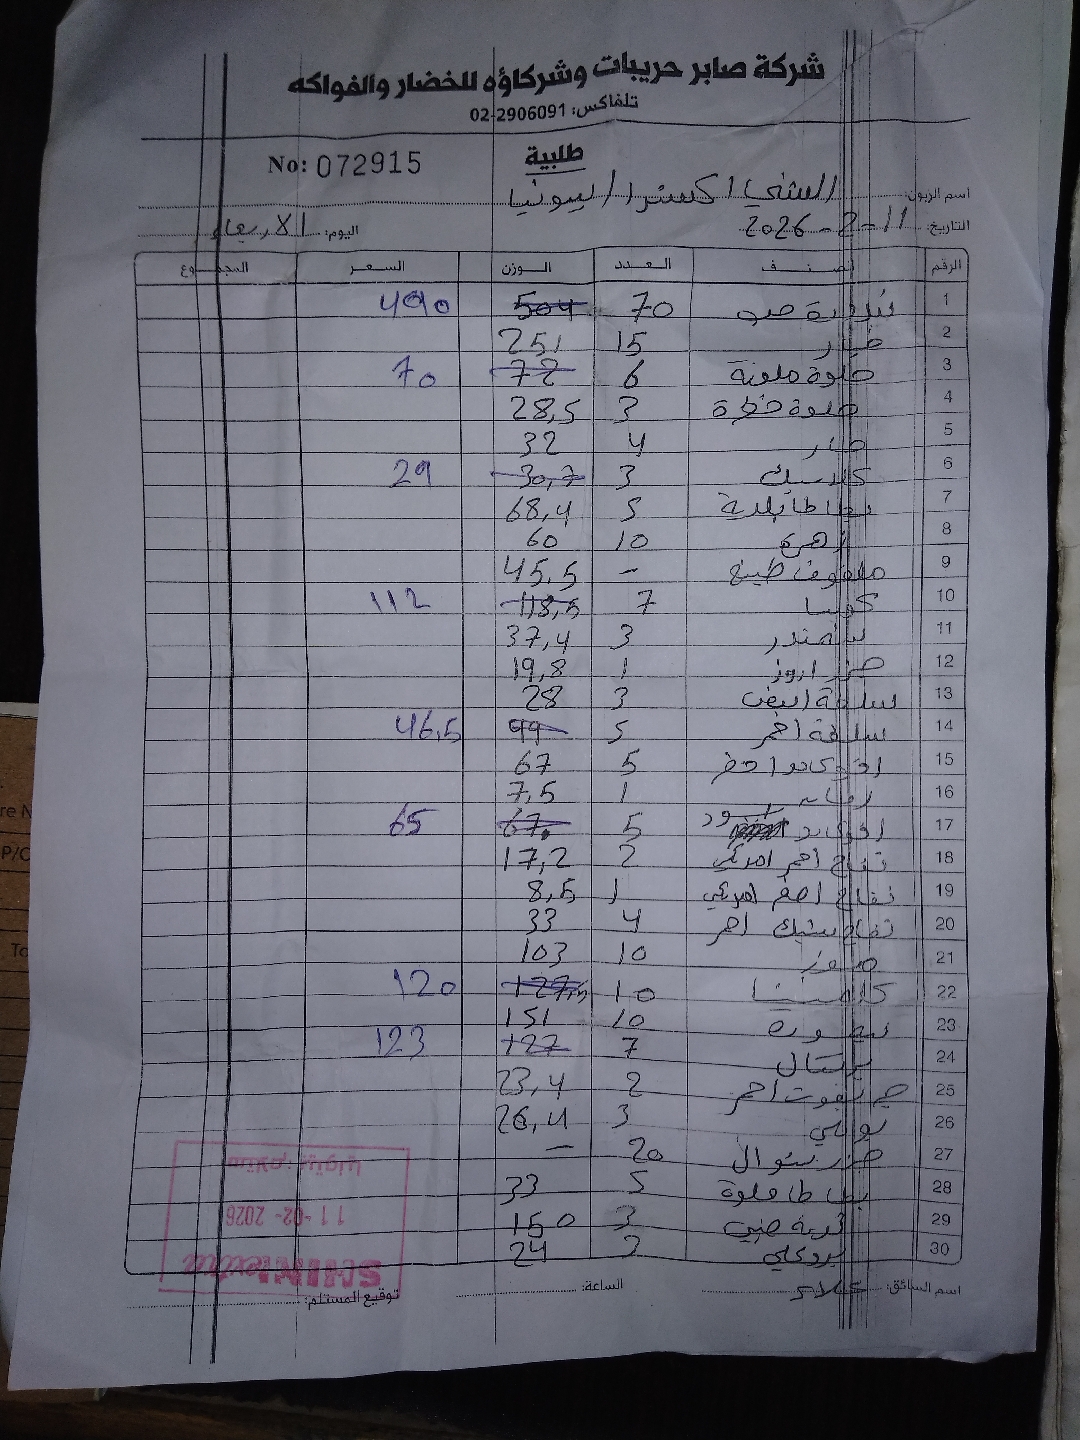 شركة صابر حريبات وشركاؤه للخضار والفواكه
تلفاكس: 02-2906091
طلبية
No: 072915
اسم الزبون: الشني اكسترا / بيتونيا
التاريخ: 11-2-2026 اليوم: الاربعاء
الرقم الصنف العدد الوزن السعر المجموع
1 بندورة 70 504 490
2 خيار 15 251
3 حلوة ملونة 6 72 70
4 حلوة خضرة 3 28,5
5 حار 4 32
6 كلاسيك 3 30,7 29
7 بطاطا بلدية 5 68,4
8 زهرة 10 60
9 ملفوف طبيخ - 45,5
10 كوسا 7 118,5 112
11 شمندر 3 37,4
12 جزر 1 19,8
13 ابيض 3 28
14 احمر 5 99 46,5
15 افوكادو اخضر 5 67
16 1 7,5
17 افوكادو اسود 5 67 65
18 تفاح احمر امريكي 2 17,2
19 تفاح اصفر امريكي 1 8,5
20 تفاح احمر 4 33
21 موز 10 103
22 كلمنتينا 10 127,5 120
23 10 151
24 برتقال 7 127 123
25 جريفوت احمر 2 23,4
26 بوملي 3 26,4
27 جزر 20 -
28 بطاطا حلوة 5 33
29 3 150
30 بروكلي 2 24
اسم السائق: علاء الساعة: توقيع المستلم:
استلام: بيتونيا
11-02-2026